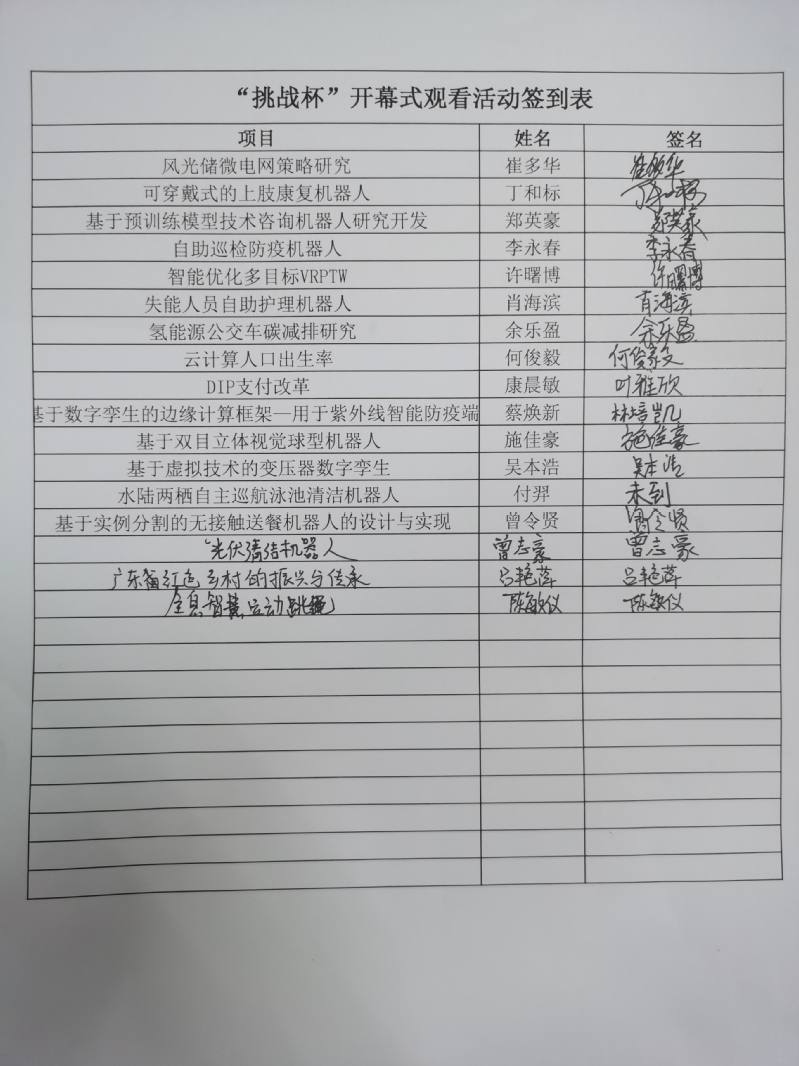 “挑战杯”开幕式观看活动签到表
项目 姓名 签名
风光储微电网策略研究 崔多华 崔多华
可穿戴式的上肢康复机器人 丁和标 丁和标
基于预训练模型技术咨询机器人研究开发 郑英豪 郑英豪
自助巡检防疫机器人 李永春 李永春
智能优化多目标VRPTW 许曙博 许曙博
失能人员自助护理机器人 肖海滨 肖海滨
氢能源公交车碳减排研究 余乐盈 余乐盈
云计算人口出生率 何俊毅 何俊毅
DIP支付改革 康晨敏 叶雅欣
基于数字孪生的边缘计算框架—用于紫外线智能防疫端 蔡焕新 林培凯
基于双目立体视觉球型机器人 施佳豪 施佳豪
基于虚拟技术的变压器数字孪生 吴本浩 吴本浩
水陆两栖自主巡航泳池清洁机器人 付羿 未到
基于实例分割的无接触送餐机器人的设计与实现 曾令贤 曾令贤
光伏清洁机器人 曾志豪 曾志豪
广东省红色乡村的振兴与传承 吕艳萍 吕艳萍
全息智慧运动跳绳 陈敏仪 陈敏仪